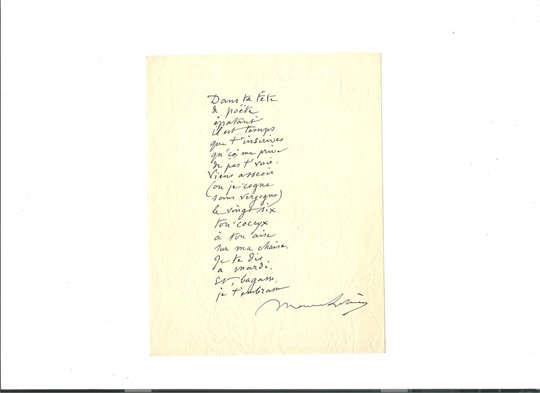 Dans ta tête
de poëte
épatant
il est temps
que t'inscrives
qu'ça me prive
de pas t'voir.
Viens asseoir
(ou je cogne
sans vergogne)
le vingt six
ton coccyx
à ton aise
sur ma chaise.
Je te dis
à mardi.
Et, bagasse,
je t'embrasse